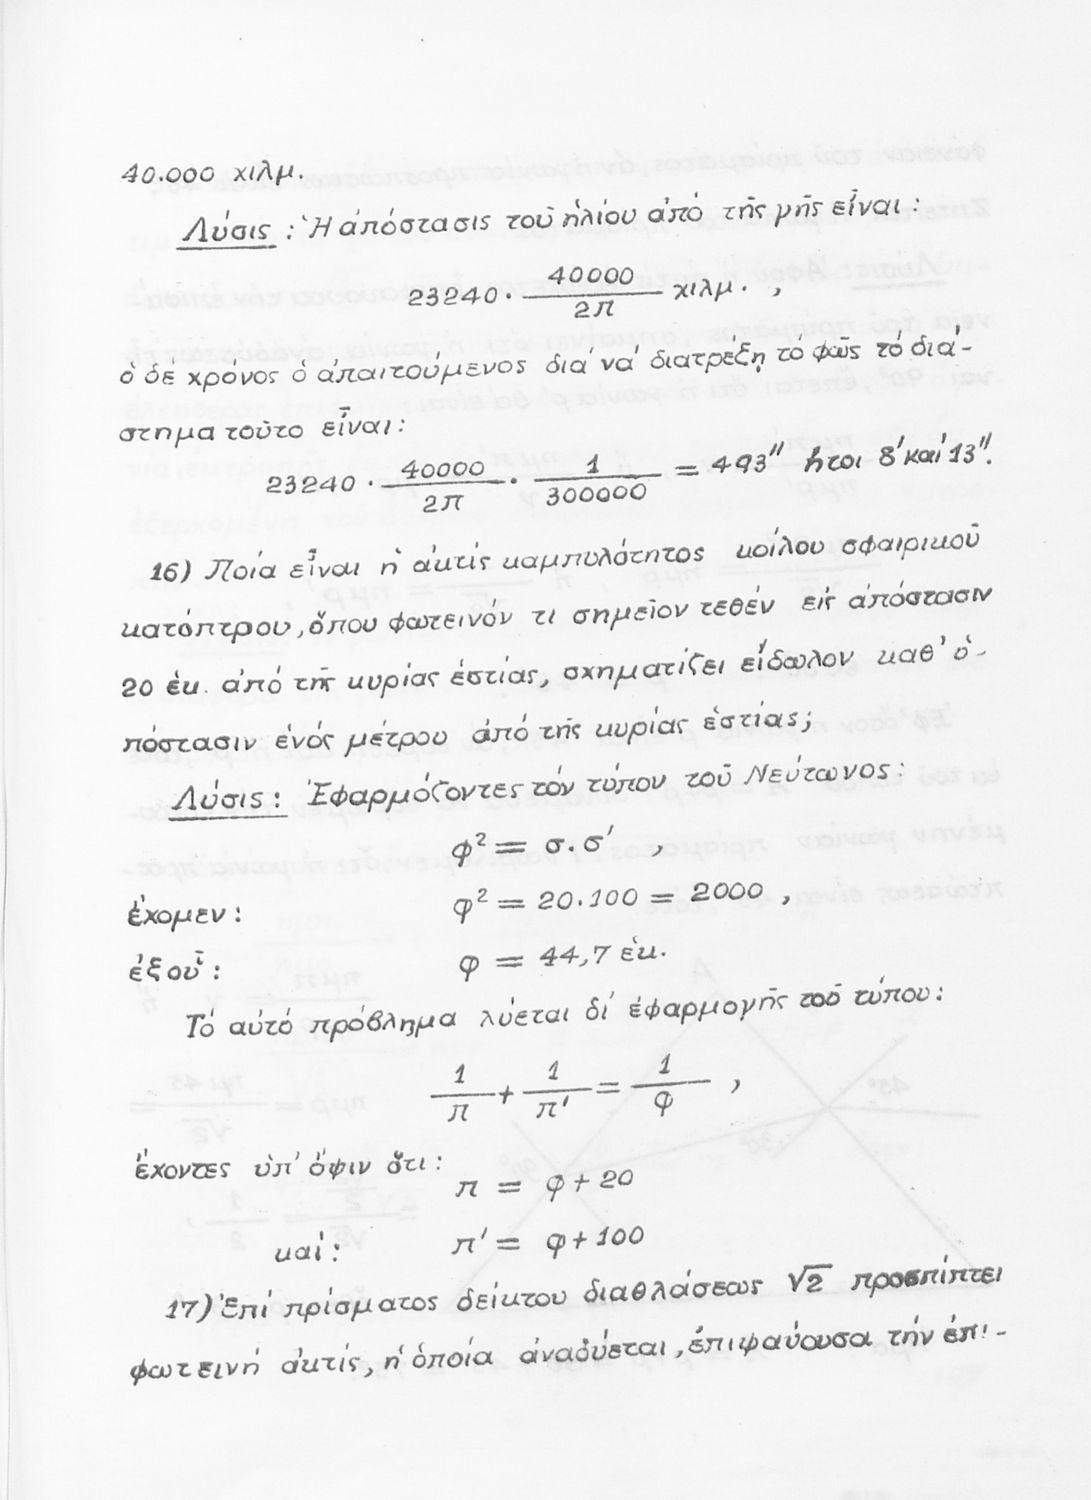 40.000 χιλμ.
Λύσις : Ἡ ἀπόστασις τοῦ ἡλίου ἀπό τῆς γῆς εἶναι :
23240 · 40000/2π χιλμ. ,
ὁ δέ χρόνος ὁ ἀπαιτούμενος διά νά διατρέξῃ τό φῶς τό διά-
στημα τοῦτο εἶναι :
23240 · 40000/2π · 1/300000 = 493'' ἤτοι 8' καί 13''.
16) Ποία εἶναι ἡ ἀκτίς καμπυλότητος κοίλου σφαιρικοῦ
κατόπτρου, ὅπου φωτεινόν τι σημεῖον τεθέν εἰς ἀπόστασιν
20 ἑκ. ἀπό τῆς κυρίας ἑστίας, σχηματίζει εἴδωλον καθ' ἀ-
πόστασιν ἑνός μέτρου ἀπό τῆς κυρίας ἑστίας;
Λύσις : Ἐφαρμόζοντες τόν τύπον τοῦ Νεύτωνος :
φ² = σ.σ' ,
ἔχομεν : φ² = 20.100 = 2000 ,
ἐξ οὗ : φ = 44,7 ἑκ.
Τό αὐτό πρόβλημα λύεται δι' ἐφαρμογῆς τοῦ τύπου :
1/π + 1/π' = 1/φ ,
ἔχοντες ὑπ' ὄψιν ὅτι :
π = φ + 20
καί : π' = φ + 100
17) Ἐπί πρίσματος δείκτου διαθλάσεως √2 προσπίπτει
φωτεινή ἀκτίς, ἡ ὁποία ἀναδύεται, ἐπιψαύουσα τήν ἐπι-